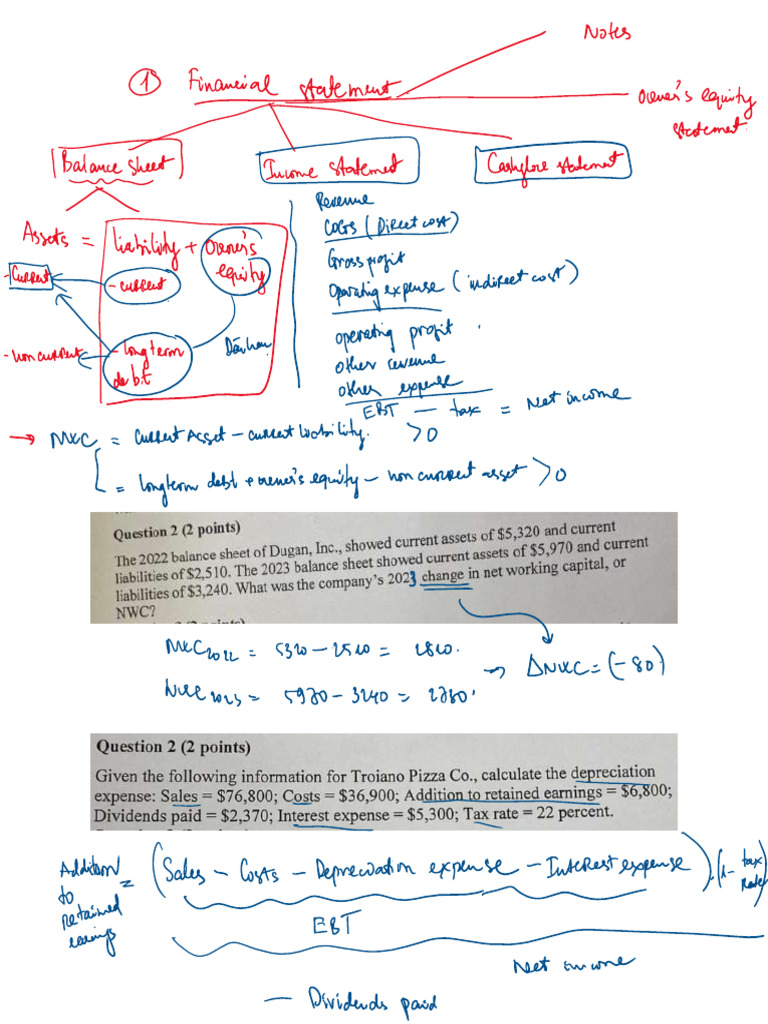 Notes
① Financial statement
owner's equity
statement
Balance sheet
Income statement
Cashflow statement
Revenue
COGS (Direct cost)
Assets = liability + owner's
equity
Gross profit
- Current
- current
Operating expense (indirect cost)
operating profit
- non current
- long term
debt
other revenue
other expense
EBT - tax = Net income
→ NWC = Current Asset - current liability. > 0
= long term debt + owner's equity - non current asset > 0
Question 2 (2 points)
The 2022 balance sheet of Dugan, Inc., showed current assets of $5,320 and current
liabilities of $2,510. The 2023 balance sheet showed current assets of $5,970 and current
liabilities of $3,240. What was the company's 2023 change in net working capital, or
NWC?
NWC2022 = 5320 - 2510 = 2810.
→ ΔNWC = (-80)
NWC2023 = 5970 - 3240 = 2730.
Question 2 (2 points)
Given the following information for Troiano Pizza Co., calculate the depreciation
expense: Sales = $76,800; Costs = $36,900; Addition to retained earnings = $6,800;
Dividends paid = $2,370; Interest expense = $5,300; Tax rate = 22 percent.
Addition
to
retained
earings
= (Sales - Costs - Depreciation expense - Interest expense).(1- tax
rate)
EBT
Net income
- Dividends paid